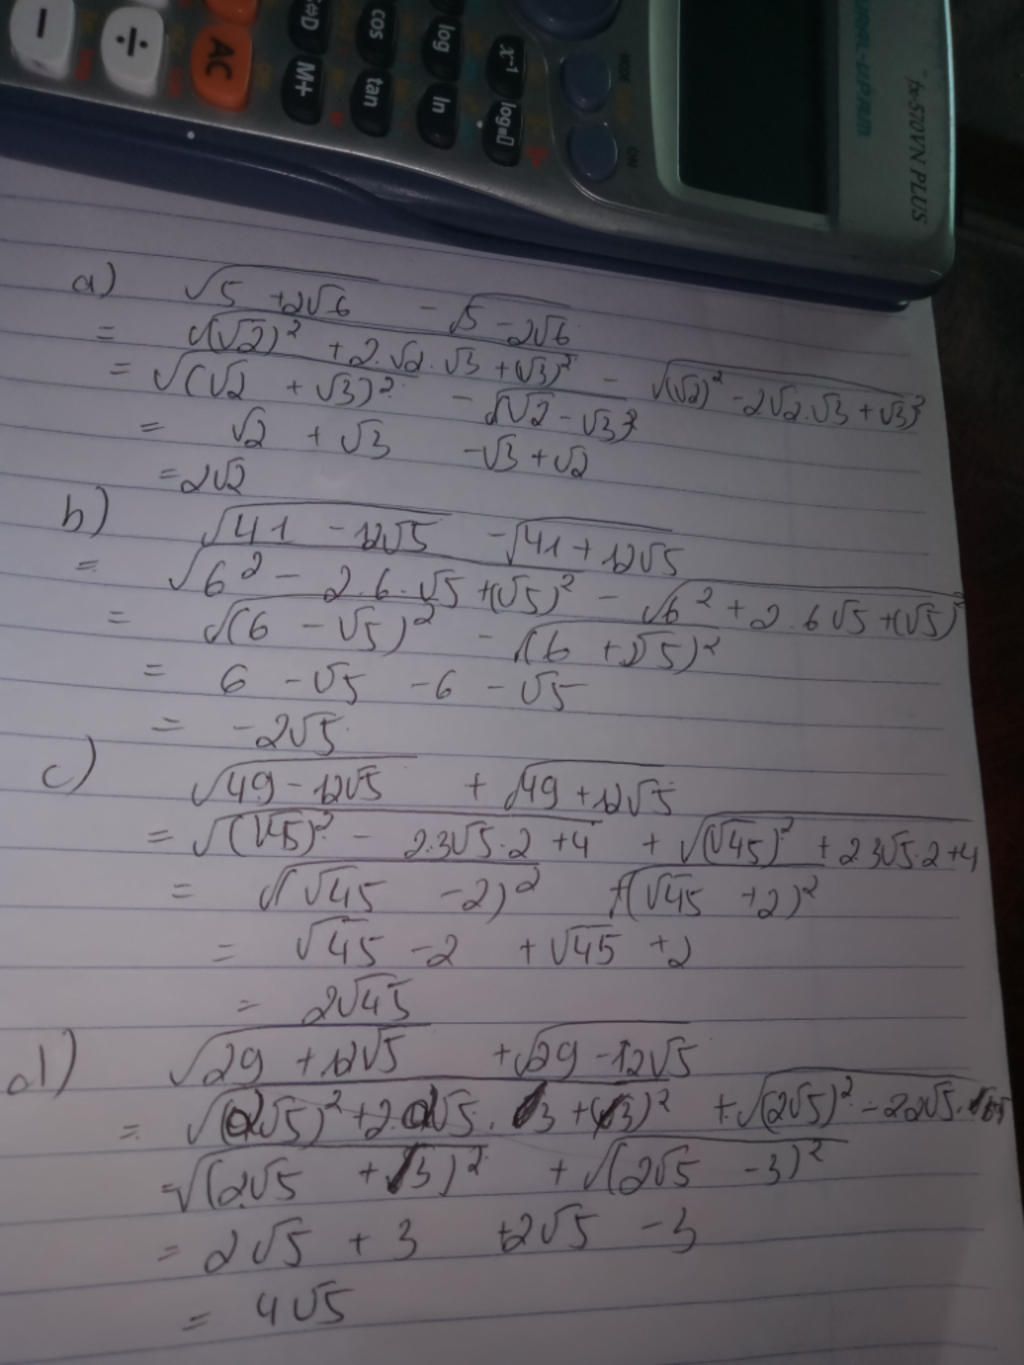 −
÷
AC
M+
cos
tan
log
ln
x⁻¹
MODE
ON
fx-570VN PLUS
a) √(5 + 2√6) − √(5 − 2√6)
= √((√2)² + 2.√2.√3 + (√3)²) − √((√2)² − 2√2.√3 + √3)²
= √((√2 + √3)²) − √(√2 − √3)²
= √2 + √3 − √3 + √2
= 2√2
b) √(41 − 12√5) − √(41 + 12√5)
= √(6² − 2.6.√5 + (√5)²) − √(6² + 2.6√5 + (√5)²)
= √((6 − √5)²) − √((6 + √5)²)
= 6 − √5 − 6 − √5
= −2√5
c) √(49 − 12√5) + √(49 + 12√5)
= √((√45)² − 2.3√5.2 + 4) + √((√45)² + 2.3√5.2 + 4)
= √((√45 − 2)²) + √((√45 + 2)²)
= √45 − 2 + √45 + 2
= 2√45
d) √(29 + 12√5) + √(29 − 12√5)
= √((2√5)² + 2.2√5.3 + (3)²) + √((2√5)² − 2.2√5.
= √((2√5 + 3)²) + √((2√5 − 3)²)
= 2√5 + 3 + 2√5 − 3
= 4√5